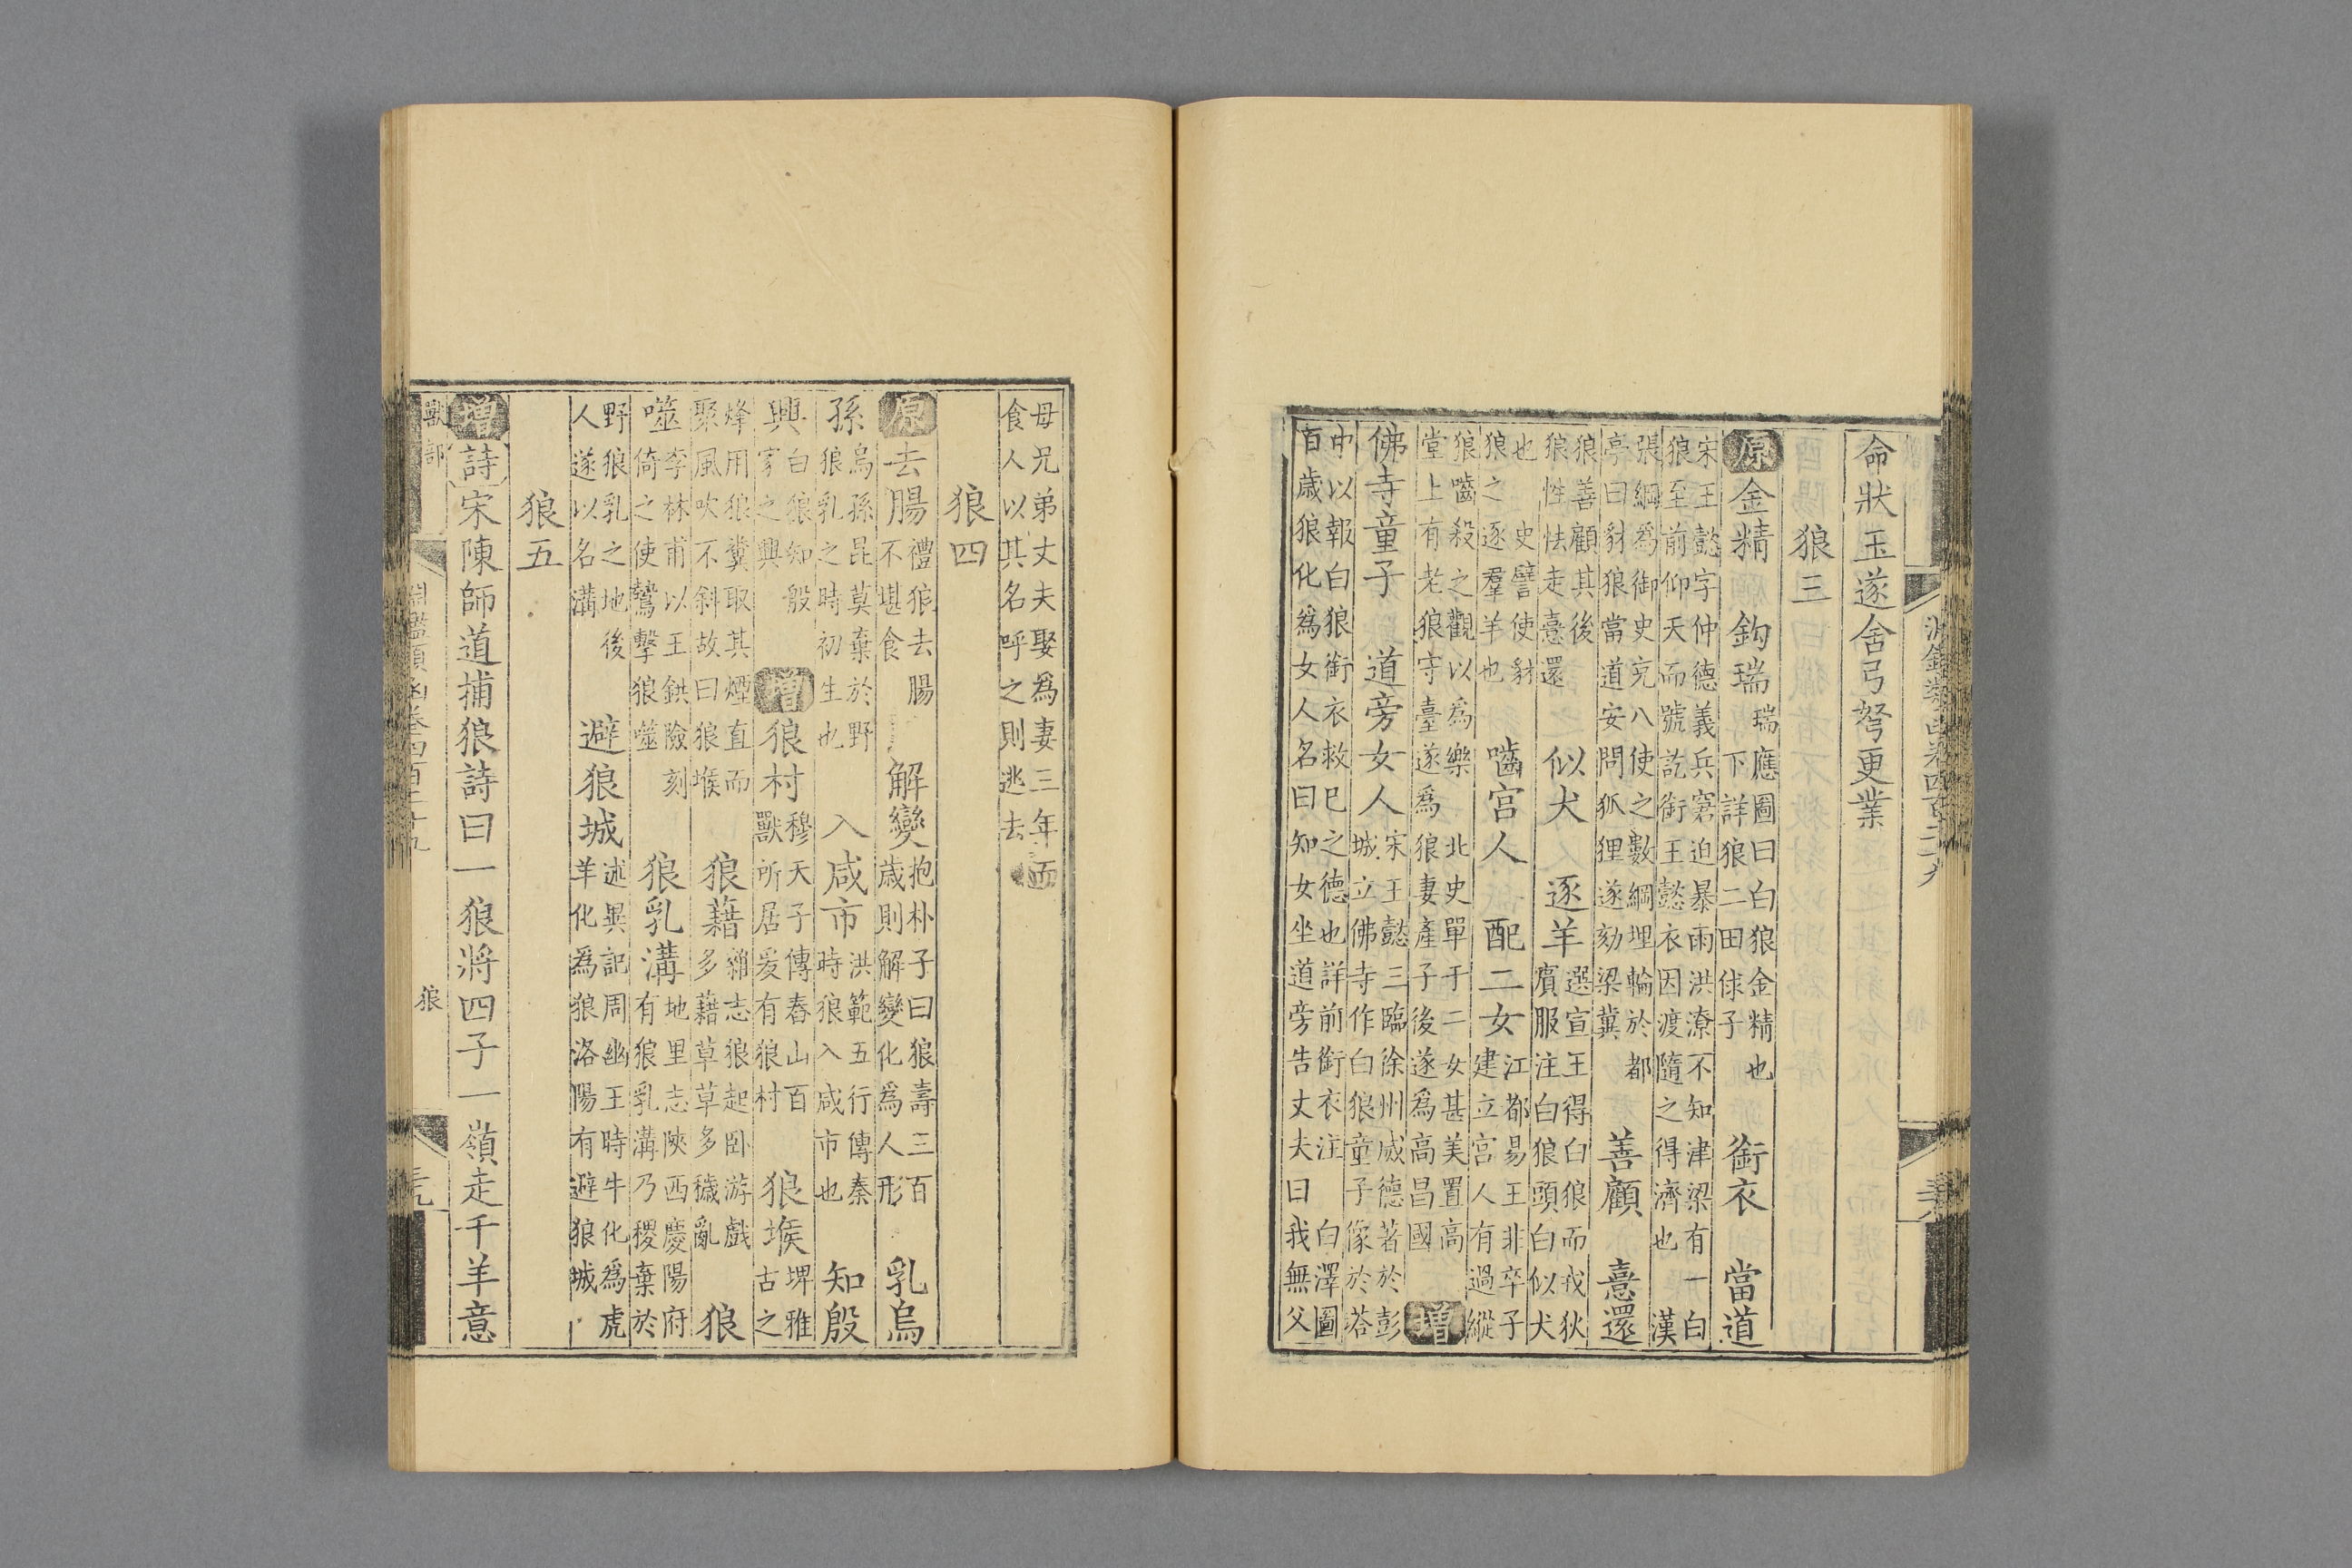 命狀玉遂舍弓弩更業
狼三
原金精 鉤瑞瑞應圖曰白狼金精也下詳狼二田俅子 銜衣 當道
宋王懿字仲德義兵窘迫暴雨洪潦不知津梁有一白
狼至前仰天而號訖銜王懿衣因渡隨之得濟也 漢
張綱為御史充八使之數綱埋輪於都
亭曰豺狼當道安問狐狸遂劾梁冀 善顧 憙還
狼善顧其後
狼性怯走憙還 似犬 逐羊選宣王得白狼而戎狄
賓服注白狼頭白似犬
也 史譬使豺
狼之逐羣羊也 嚙宮人 配二女江都易王非卒子
建立宮人有過縱
狼嚙殺之觀以為樂 北史單于二女甚美置高
堂上有老狼守臺遂為狼妻產子後遂為高昌國 增
佛寺童子 道旁女人宋王懿三臨徐州威德著於彭
城立佛寺作白狼童子像於塔
中以報白狼銜衣救已之德也詳前銜衣注 白澤圖
百歲狼化為女人名曰知女坐道旁告丈夫曰我無父
母兄弟丈夫娶為妻三年而
食人以其名呼之則逃去
狼四
原去腸禮狼去腸
不堪食 解變抱朴子曰狼壽三百
歲則解變化為人形 乳烏
孫烏孫昆莫棄於野
狼乳之時初生也 入咸市洪範五行傳秦
時狼入咸市也 知殷
興白狼知殷
家之興 增狼村穆天子傳舂山百
獸所居爰有狼村 狼堠埤雅
古之
烽用狼糞取其煙直而
聚風吹不斜故曰狼堠 狼藉雜志狼起卧游戲
多藉草草多穢亂 狼
噬李林甫以王鉷險刻
倚之使鷙擊狼噬 狼乳溝地里志陝西慶陽府
有狼乳溝乃稷棄於
野狼乳之地後
人遂以名溝 避狼城述異記周幽王時牛化為虎
羊化為狼洛陽有避狼城
狼五
增詩宋陳師道捕狼詩曰一狼將四子一嶺走千羊意
獸部
狼